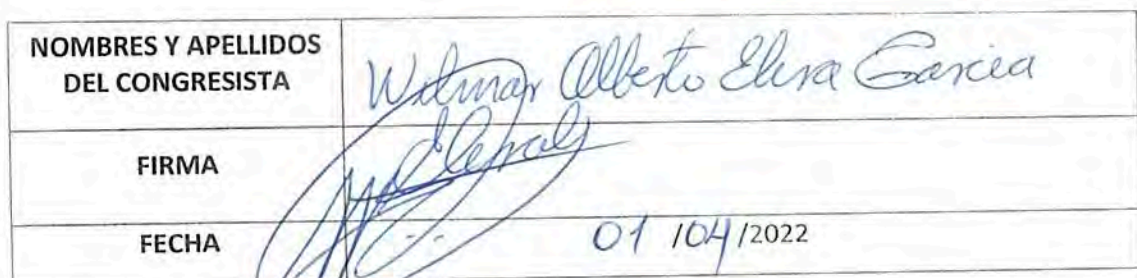 NOMBRES Y APELLIDOS
DEL CONGRESISTA
Wilmar Alberto Elera Garcia
FIRMA
FECHA
01 /04/2022